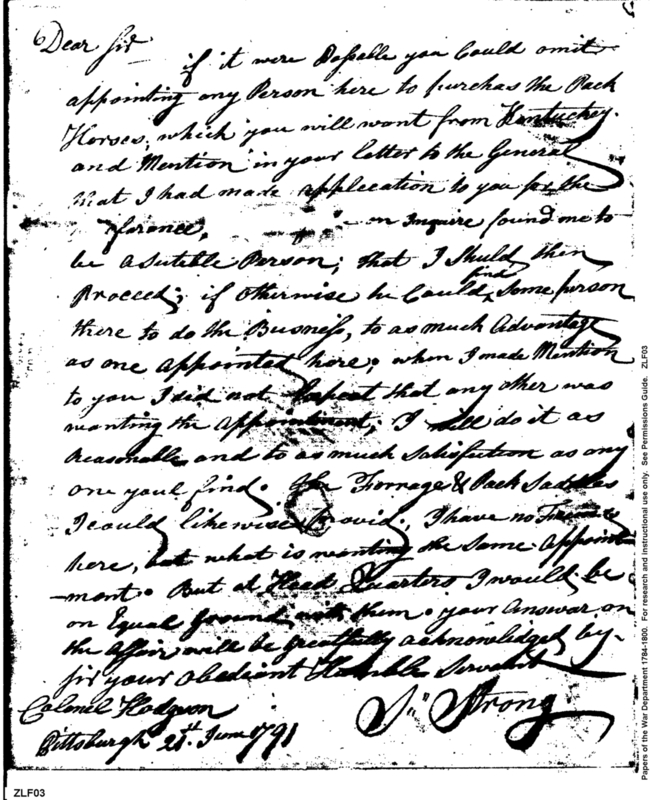 Dear Sir
if it were Possable you Could omit
appointing any Person here to purchas the Pack
Horses, which you will want from Kentuckey.
and Mention in your letter to the General
that I had made application to you for the
on Inquire found me to
be a Sutable Person; that I Shuld then
Proceed; if otherwise he Could find Some person
there to do the Business, to as much Advantage
as one appointed here; when I made Mention
to you I did not that any other was
wanting the appointment; I will do it as
Reasonable and to as much Satisfaction as any
one youl find. The Forrage & Pack Saddles
I could likewise Provid. I have no
here, but what is wanting the Same Appoint
-ment. But at Head Quarters I would be
on Equal Ground with them. your Answar on
the Affair will be greatfully acknowledged by.
Sir your Obediant Humble Servant
Strong
Colonel Hodgson
Pittsburgh 21st June 1791
ZLF03
Papers of the War Department 1784-1800. For research and instructional use only. See Permissions Guide. ZLF03